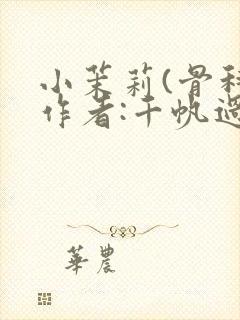 小茉莉(骨科
作者:千帆過
華農